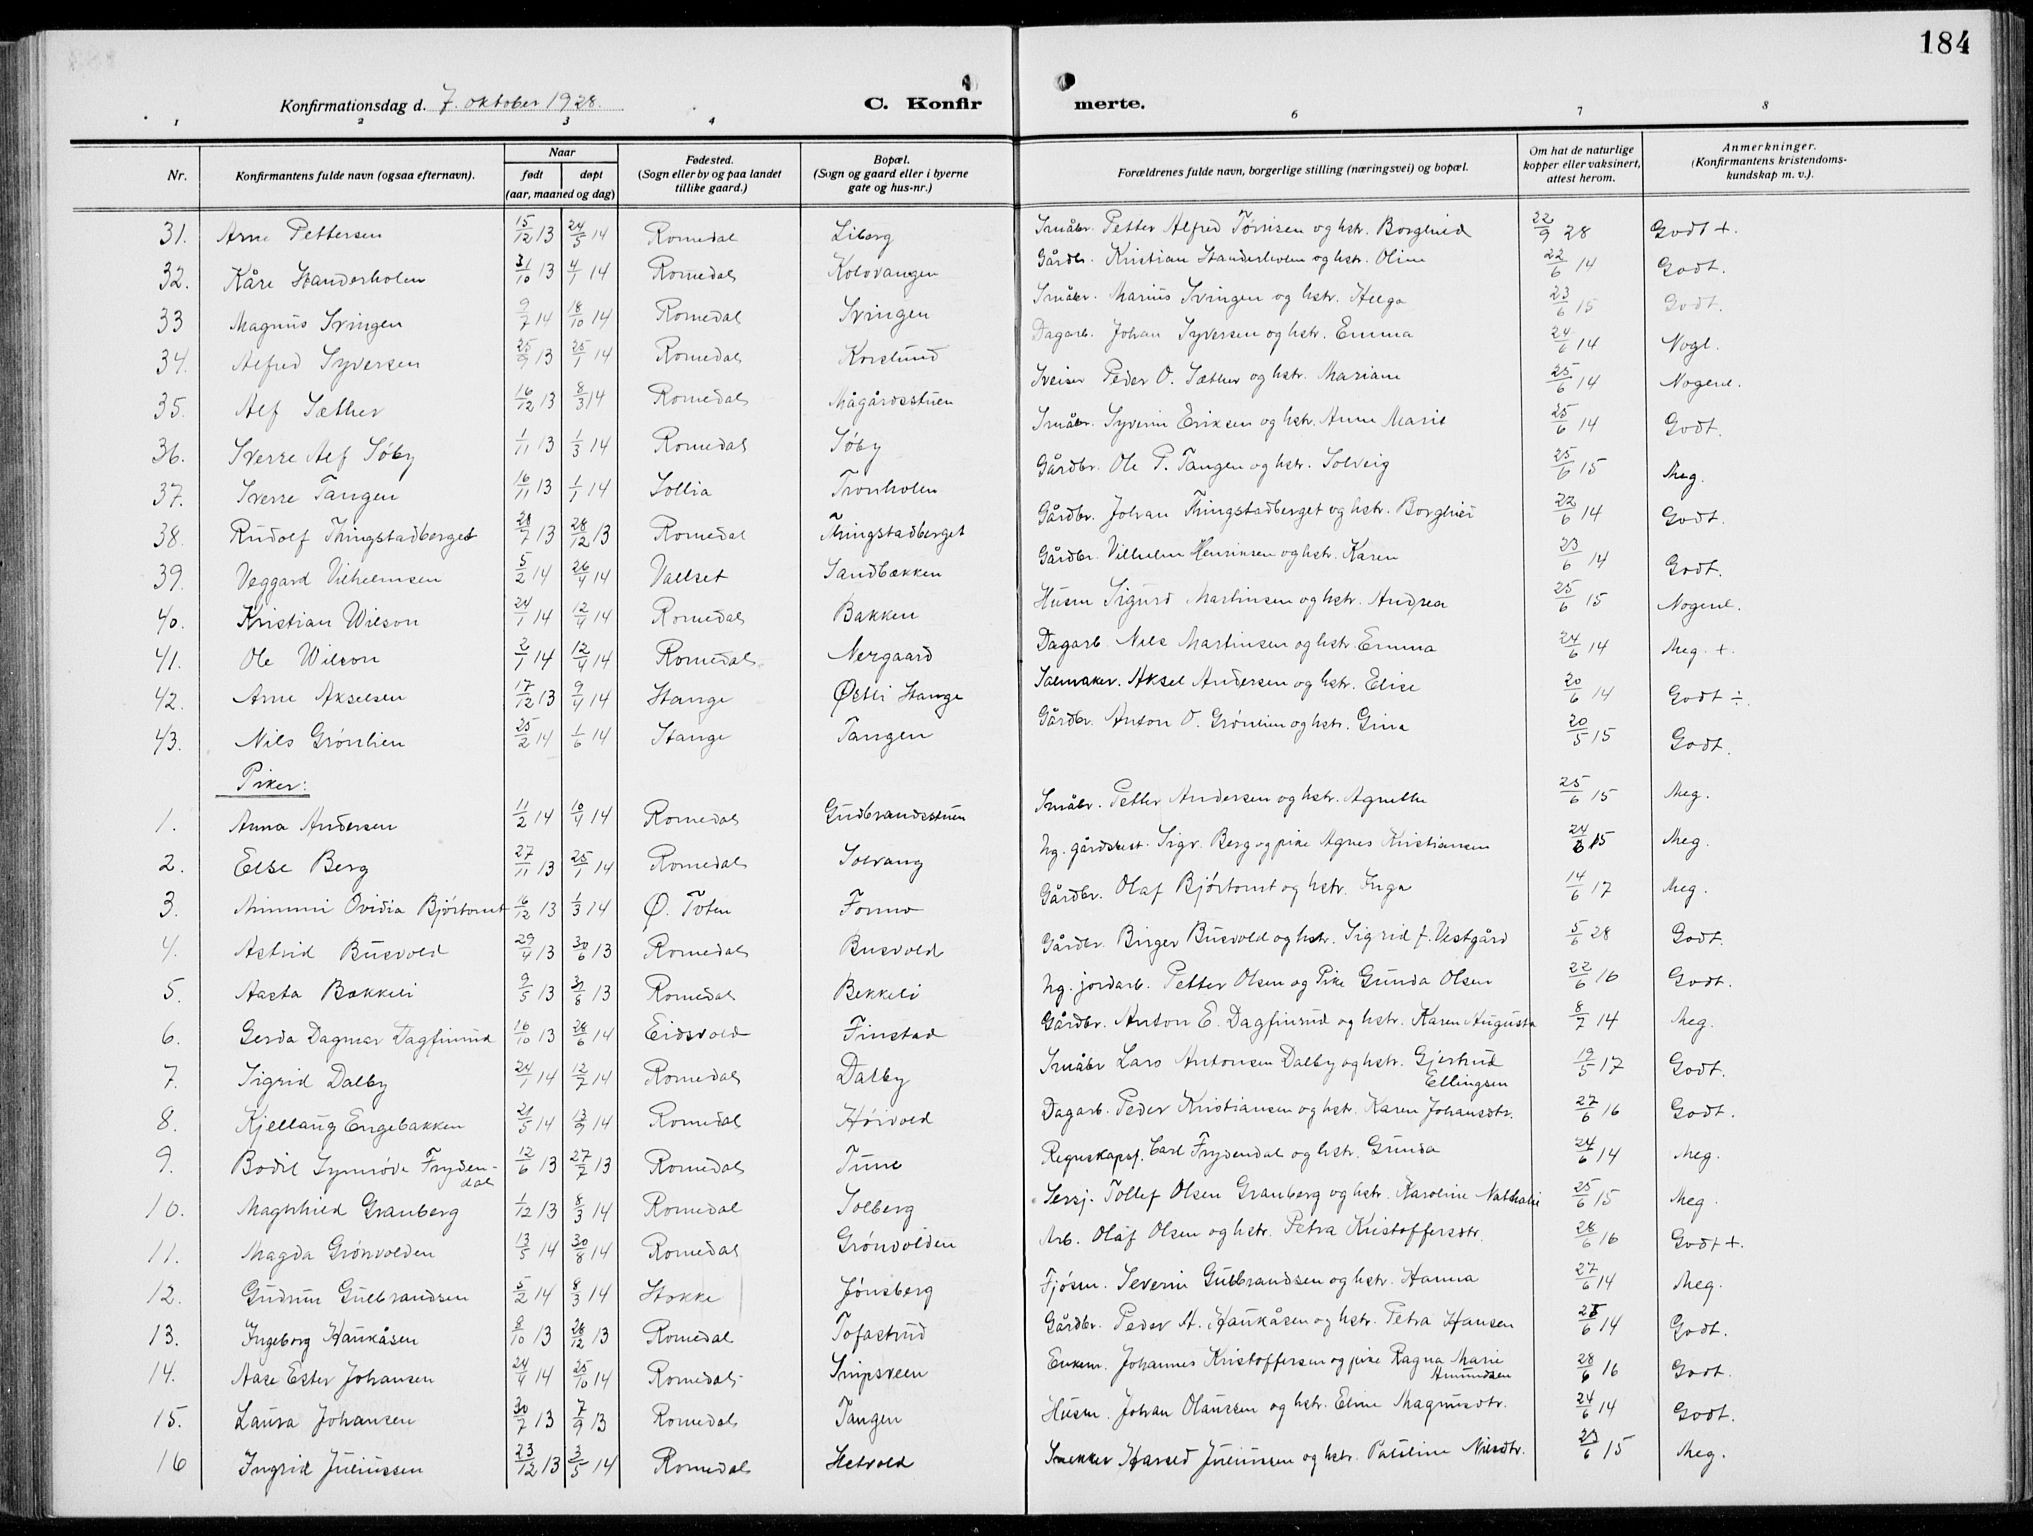 184
Konfirmationsdag d. 7. oktober 1928.
C. Konfirmerte.
1 2 3 4 6 7 8
Nr. Konfirmantens fulde navn (ogsaa efternavn). Naar født døpt (aar, maaned og dag) Fødested. (Sogn eller by og paa landet tillike gaard.) Bopæl. (Sogn og gaard eller i byerne gate og hus-nr.) Forældrenes fulde navn, borgerlige stilling (næringsvei) og bopæl. Om hat de naturlige kopper eller vaksinert, attest herom. Anmerkninger. (Konfirmantens kristendomskundskap m. v.).
31. Arne Pettersen 15/12 13 24/5 14 Romedal Liberg Småbr. Petter Alfred Tørrisen og hstr. Borghild 22/9 28 Godt +.
32. Kåre Standerholen 31/10 13 4/1 14 Romedal Kolovangen Gårdbr. Kristian Standerholen og hstr. Oline 22/6 14 Godt.
33 Magnus Svingen 9/7 14 18/10 14 Romedal Svingen Småbr. Marius Svingen og hstr. Helga 23/6 15 Godt.
34. Alfred Syversen 25/9 13 25/1 14 Romedal Korslund Dagarb. Johan Syversen og hstr. Emma 24/6 14 Nogl.
35. Alf Sæther 16/12 13 8/3 14 Romedal Mågårdsstuen Sveiser Peder O. Sæther og hstr. Mariane 25/6 14 Nogenl.
36. Sverre Alf Søby 1/11 13 1/3 14 Romedal Søby Småbr. Syverin Eriksen og hstr. Anne Marie 25/6 14 Godt.
37. Sverre Tangen 16/11 13 1/1 14 Sollia Tronholen Gårdbr. Ole P. Tangen og hstr. Solveig 25/6 15 Meg.
38. Rudolf Thingstadberget 28/7 13 28/12 13 Romedal Thingstadberget Gårdbr. Johan Thingstadberget og hstr. Borghild 22/6 14 Godt.
39. Veggard Vilhelmsen 5/2 14 26/4 14 Vallset Sandbækken Gårdbr. Vilhelm Henriksen og hstr. Karen 23/6 14 Godt.
40. Kristian Wilson 24/1 14 12/4 14 Romedal Bakken Husm Sigurd Martinsen og hstr. Andrea 25/6 15 Nogenl.
41. Ole Wilson 2/1 14 12/4 14 Romedal Nergaard Dagarb. Nils Martinsen og hstr. Emma 24/6 14 Meg. +.
42. Arne Akselsen 17/12 13 9/4 14 Stange Østli Stange Salmaker. Aksel Andersen og hstr. Elise 20/6 14 Godt ÷.
43. Nils Grønlien 25/2 14 1/6 14 Stange Tangen Gårdbr. Anton O. Grønlien og hstr. Gina 20/5 15 Godt.
Piker:
1. Anna Andersen 11/2 14 10/4 14 Romedal Gudbrandsstuen Småbr. Petter Andersen og hstr. Agnethe 25/6 15 Meg.
2. Else Berg 27/11 13 25/1 14 Romedal Solvang Ug. gårdsbest. Sigv. Berg og pike Agnes Kristiansen 24/6 15 Meg.
3. Mimmi Ovidia Bjørtomt 16/12 13 1/3 14 Ø. Toten Fonno Gårdbr. Olaf Bjørtomt og hstr. Inga 14/6 17 Meg.
4. Astrid Busvold 29/4 13 30/6 13 Romedal Busvold Gårdbr. Birger Busvold og hstr. Sigrid f. Vestgård 5/6 28 Godt.
5. Aasta Bækkeli 9/5 13 13 Romedal Bekkeli Ug. jordarb. Petter Olsen og Pike Gunda Olsen 22/6 16 Godt.
6. Gerda Dagmar Dagfinrud 16/10 13 28/6 14 Eidsvold Finstad Gårdbr. Anton E. Dagfinrud og hstr. Karen Augusta 8/7 14 Meg.
7. Sigrid Dalby 24/1 14 12/7 14 Romedal Dalby Småbr Lars Antonsen Dalby og hstr. Gjertrud Ellingsen 19/5 17 Godt.
8. Kjellaug Engebakken 21/5 14 13/9 14 Romedal Høivold Dagarb. Peder Kristiansen og hstr. Karen Johansdtr. 27/6 16 Godt.
9. Bodil Synnøve Frydendal 12/6 13 27/7 13 Romedal Tune Regnskapsf. Carl Frydendal og hstr. Gunda 24/6 14 Meg.
10. Magnhild Granberg 1/12 13 8/3 14 Romedal Solberg Sersj. Tollef Olsen Granberg og hstr. Karoline Nathalie 25/6 15 Meg.
11. Magda Grønvolden 13/5 14 30/8 14 Romedal Grønvolden Arb. Olaf Olsen og hstr. Petra Kristoffersdtr. 28/6 16 Godt +.
12. Gudrun Gulbrandsen 5/2 14 8/3 14 Stokke Jønsberg Fjøsm. Severin Gulbrandsen og hstr. Hanna 27/6 14 Meg.
13. Ingeborg Haukåsen 8/10 13 28/12 13 Romedal Tofastrud Gårdbr. Peder A. Haukåsen og hstr. Petra Hansen 25/6 14 Godt.
14. Aase Ester Johansen 24/4 14 25/10 14 Romedal Snipsveen Enkem. Johannes Kristoffersen og pike Ragna Marie Amundsen 28/6 16 Godt.
15. Laura Johansen 30/7 13 7/9 13 Romedal Tangen Husm. Johan Olaussen og hstr. Eline Magnusdtr. 24/6 14 Godt.
16 Ingrid Juliussen 23/12 13 3/5 14 Romedal Hetvold Snekker Harald Juliussen og hstr. Pauline Nilsdtr. 23/6 15 Meg.